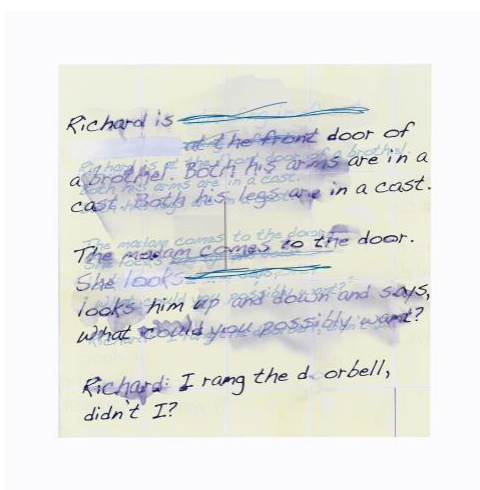 Richard is
at the front door of
a brothel. Both his arms are in a
cast. Both his legs are in a cast.
The madam comes to the door.
She looks
looks him up and down and says,
What could you possibly want?
Richard: I rang the doorbell,
didn't I?